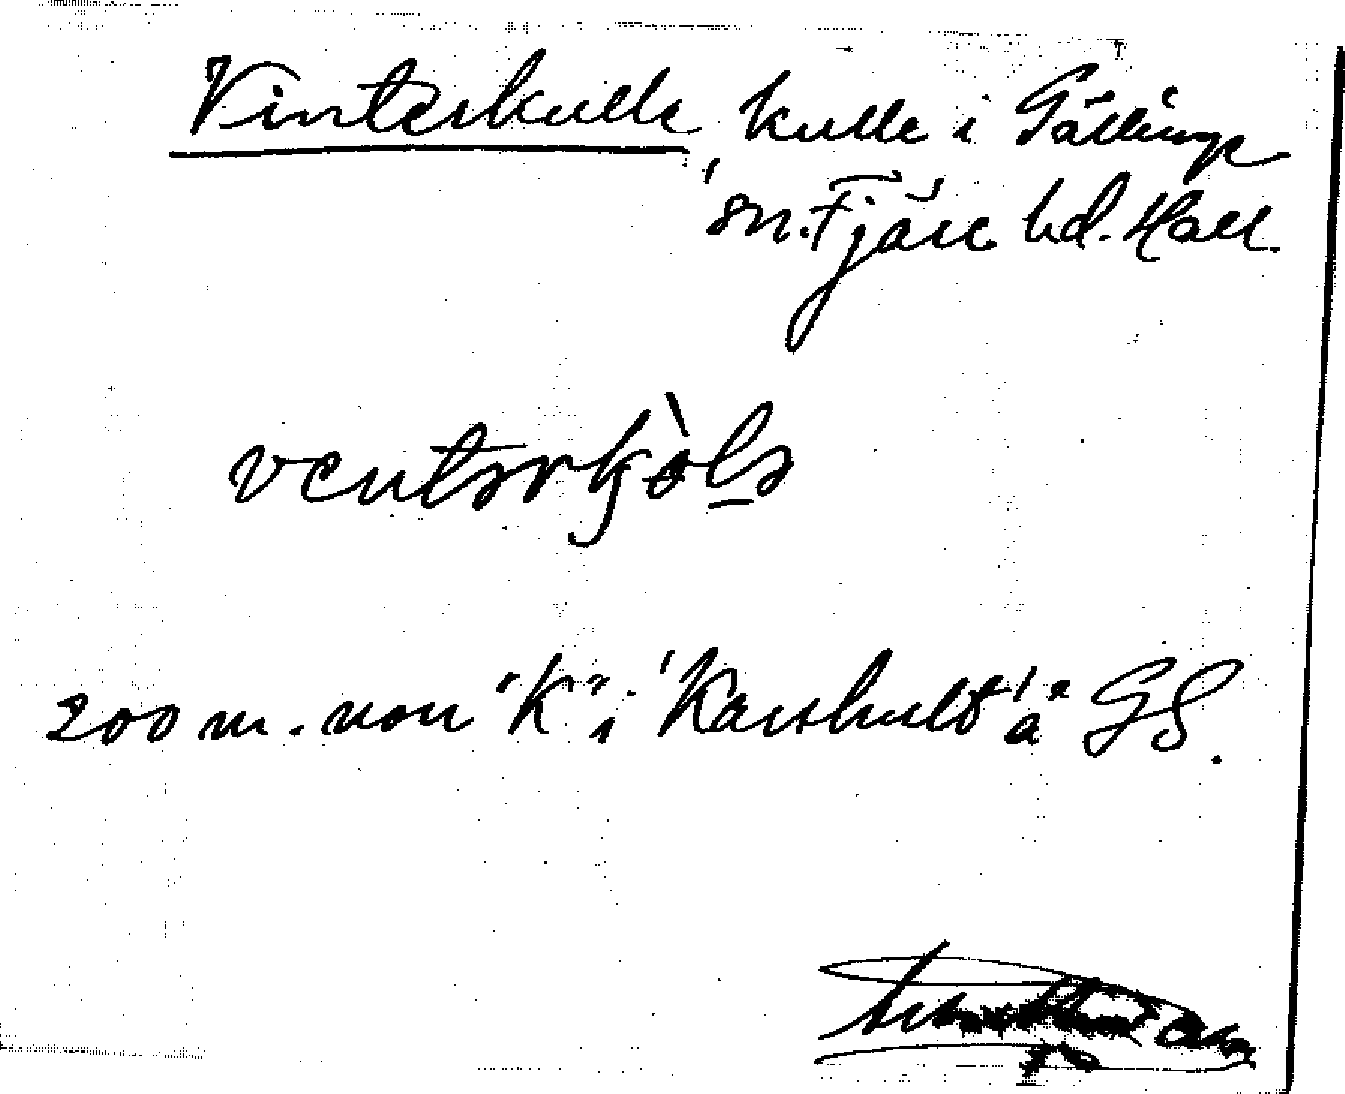 Vinterkulle, kulle i Gällinge
sn. Fjäre hd. Hall.
ventərkòlə
200 m. norr "K" i "Karshult" å GS.